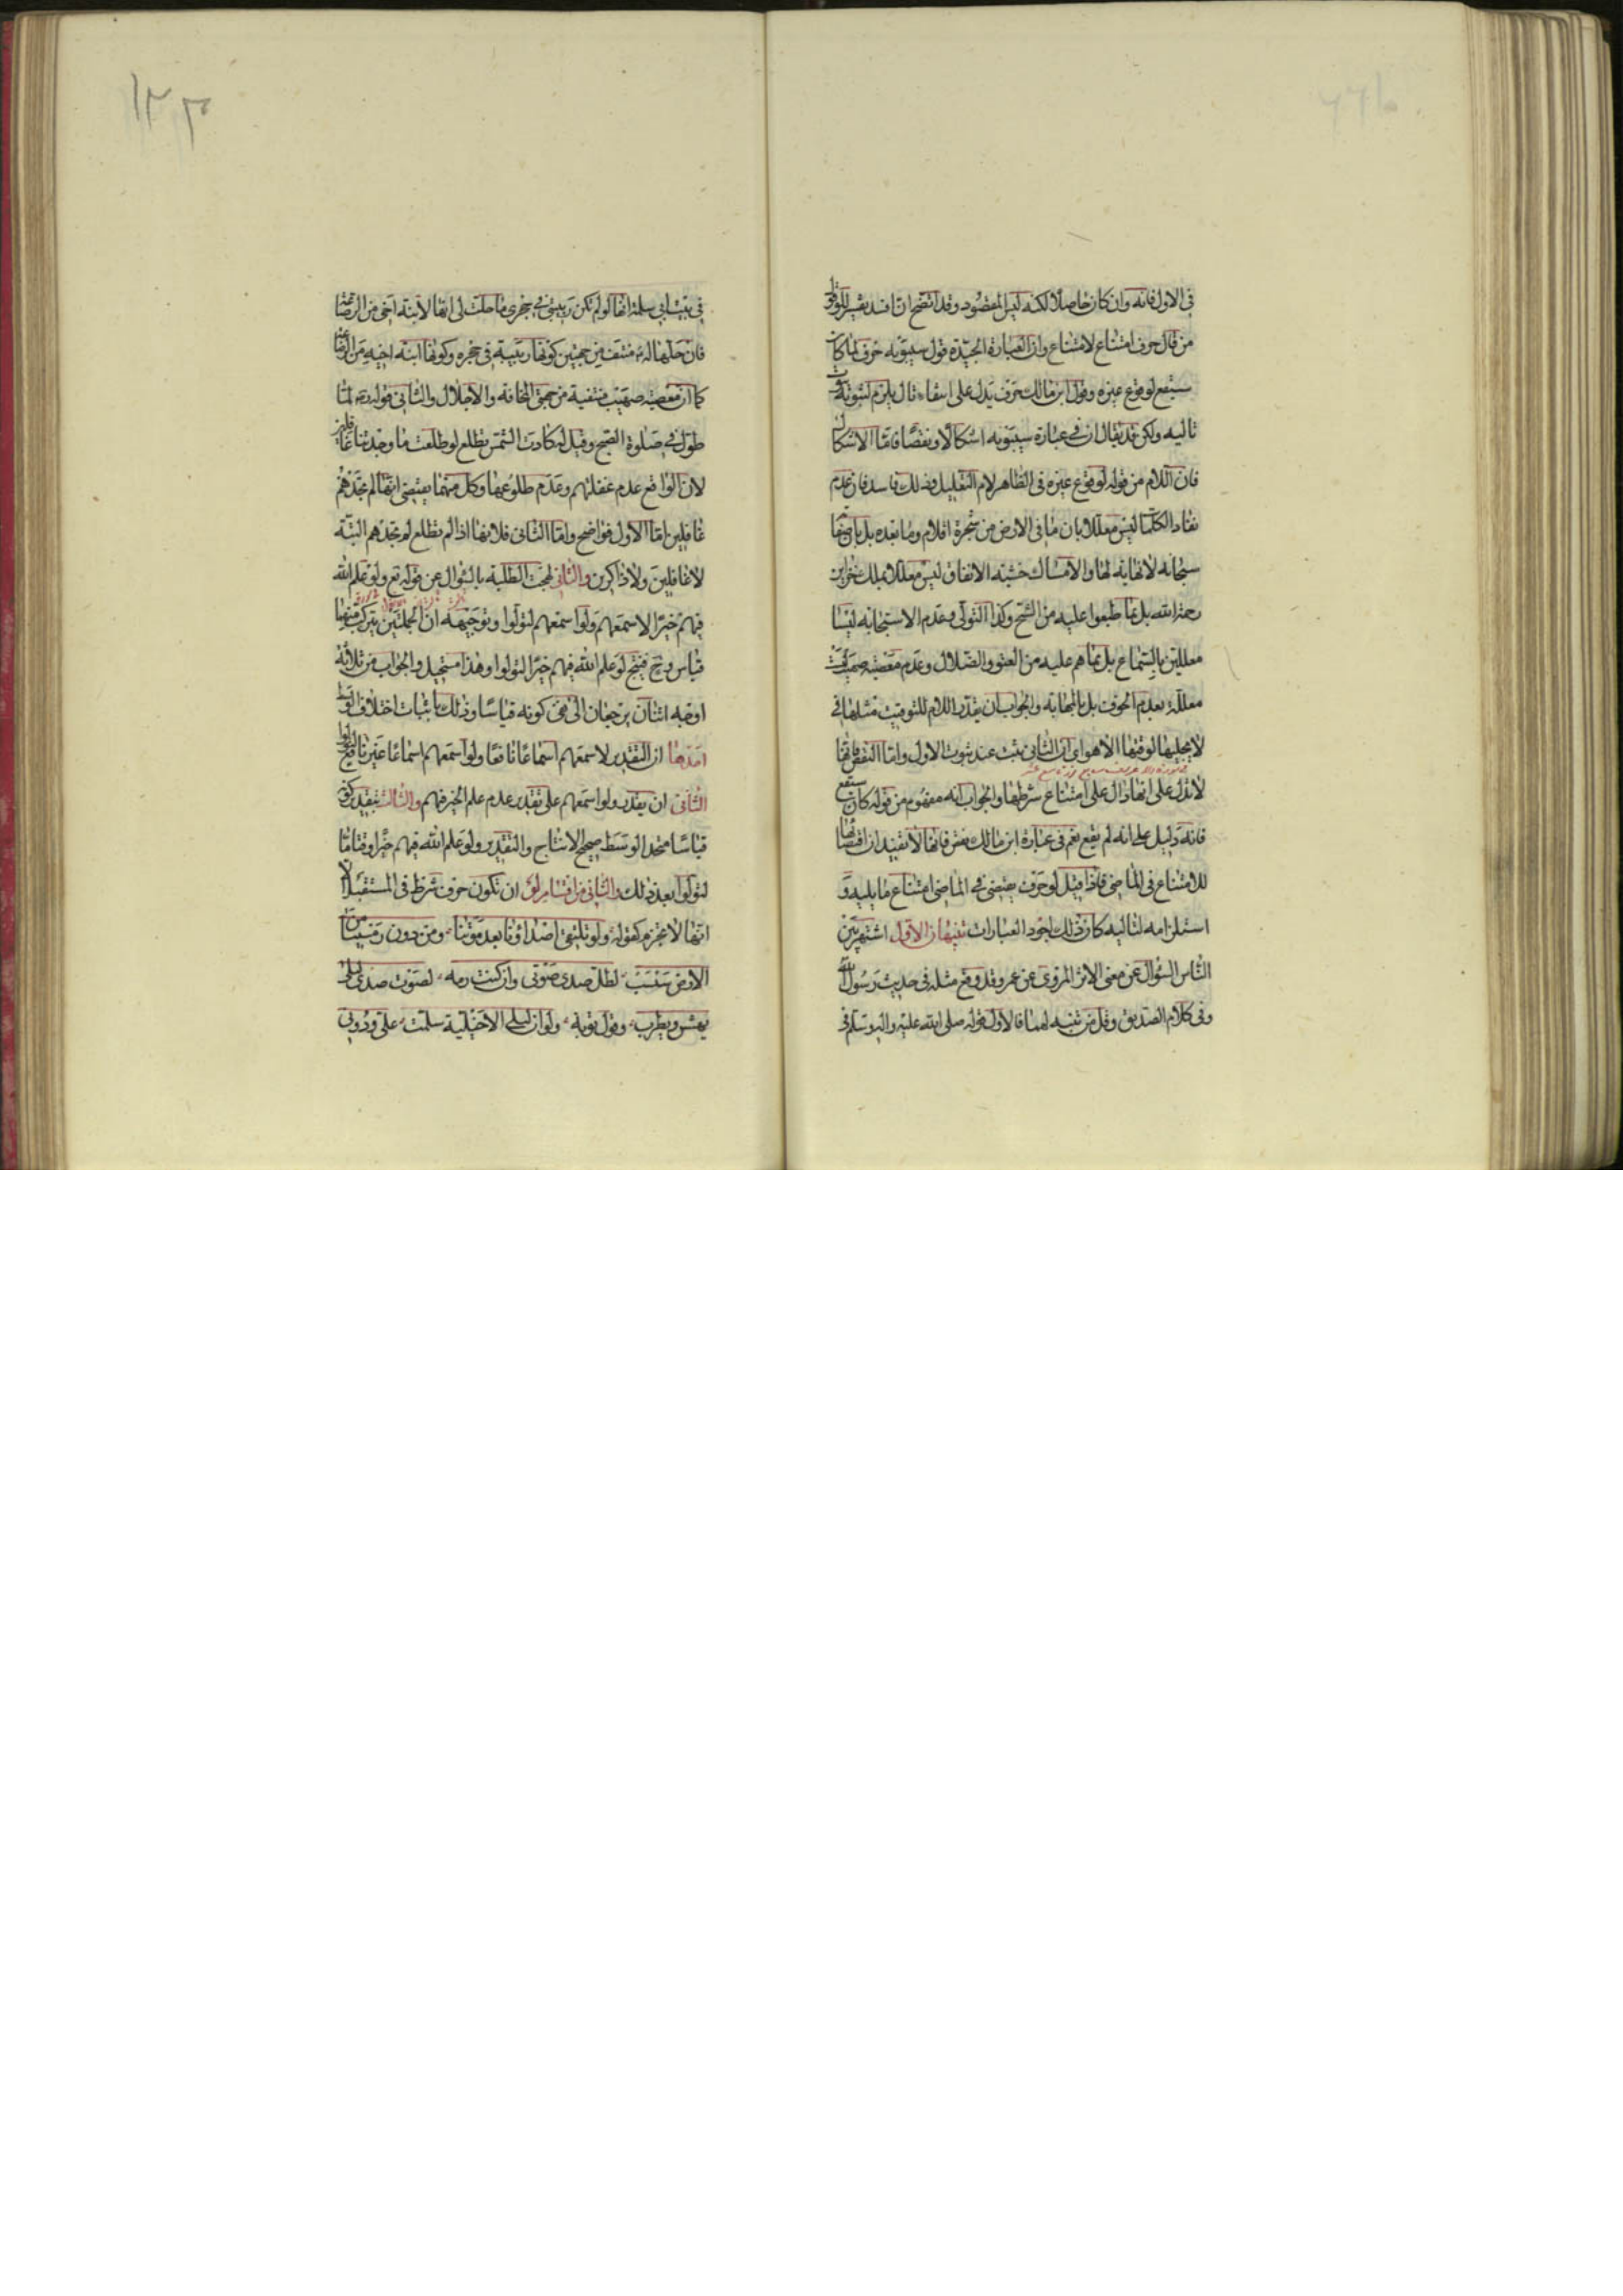 في الاول فانه وان كان حاصلا لكنه ليس المقصود وقد اتضح ان افسد تفسير للو قول
من قال حرف امتناع لامتناع وان العبارة الجيدة قول سيبويه حرف لما كان
سيقع لوقوع غيره وقول ابن مالك حرف يدل على انتفاء تال يلزم لثبوته ثبوت
تاليه ولكن قد يقال ان في عبارة سيبويه اشكالا ونقضا فاما الاشكال
فان اللام من قوله لوقوع غيره في الظاهر لام التعليل وذلك فاسد فان عدم
نفاد الكلمات ليس معللا بان ما في الارض من شجرة اقلام وما بعده بل بان صفاته
سبحانه لا نهاية لها والامساك خشية الانفاق ليس معللا بملك خزاين
رحمة الله بل بما طبعوا عليه من الشح وكذا التولي وعدم الاستجابة ليسا
معللين بالسماع بل بما هم عليه من العتو والضلال وعدم معصية صهيب ليست
معللة بعدم الخوف بل بالمهابة والجواب ان يقدر اللام للتوقيت مثلها في
لا يجليها لوقتها الا هو اي ان الثاني ثبت عند ثبوت الاول واما النقض فانها
لا تدل على انها دال على امتناع شرطها والجواب انه مفهوم من قوله كان سيقع
فانه دليل على انه لم يقع نعم في عبارة ابن مالك نقص فانها لا تفيد ان اقتضائها
للامتناع في الماضي فاذا قيل لو حرف يقتضي في الماضي امتناع ما يليه و
استلزامه لتاليه كان ذلك اجود العبارات تنبيهان الاول اشتهر بين
الناس السؤال عن معنى الاثر المروي عن عمر وقد وقع مثله في حديث رسول الله
وفي كلام الصديق وقل من تنبه لهما فالاول قوله صلى الله عليه واله وسلم في
١٢٣
في بنت ابي سلمة انها لو لم تكن ربيبتي في حجري ما حلت لي انها لابنة اخي من الرضاعة
فان حلها له منتف من جهتين كونها ربيبة في حجره وكونها ابنة اخيه من الرضاعة
كما ان معصية صهيب منتفية من جهتي المخافة والاجلال والثاني قوله لما
طول في صلوة الصبح وقيل له كادت الشمس تطلع لو طلعت ما وجدتنا غافلين
لان الواقع عدم غفلتهم وعدم طلوعها وكل منهما يقتضي انها لم تجدهم
غافلين اما الاول فواضح واما الثاني فلانها اذا لم تطلع لم تجدهم البتة
لا غافلين ولا ذاكرين والثاني لهجت الطلبة بالسؤال عن قوله تع ولو علم الله
فيهم خيرا لاسمعهم ولو اسمعهم لتولوا وتوجيهه ان الجملتين يتركب منهما
قياس وح فينتج لو علم الله فيهم خيرا لتولوا وهذا مستحيل والجواب من ثلاثة
اوجه اثنان يرجعان الى نفي كونه قياسا وذلك باثبات اختلاف الوسط
احدها ان التقدير لاسمعهم اسماعا نافعا ولو اسمعهم اسماعا غير نافع لتولوا
الثاني ان يقدر ولو اسمعهم على تقدير عدم علم الخير فيهم والثالث بتقدير كونه
قياسا متحد الوسط صحيح الانتاج والتقدير ولو علم الله فيهم خيرا وقتا ما
لتولوا بعد ذلك والثاني من اقسام لو ان تكون حرف شرط في المستقبل الا
انها لا تجزم كقوله ولو تلتقي اصداؤنا بعد موتنا ومن دون رمسينا من
الارض سبسب لظل صدى صوتي وان كنت رمه لصوت صدى ليلى
يهش ويطرب وقول توبة ولو ان ليلى الاخيلية سلمت علي ودوني